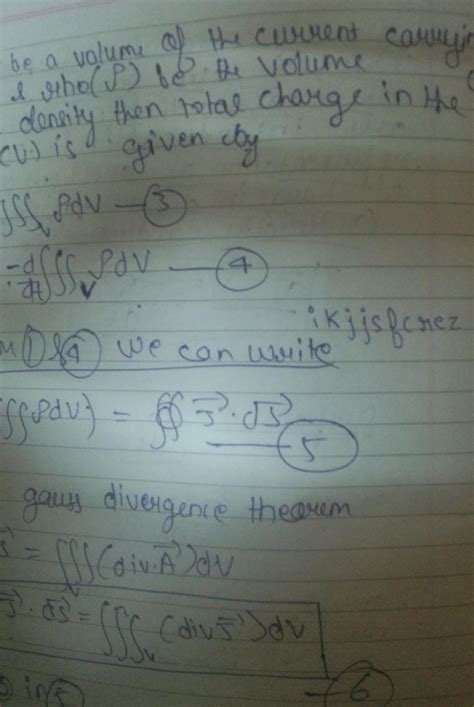 be a volume of the current carryin
& rho(ρ) be the volume
density then total charge in the
(V) is given by
∭ᵥ ρdV — ③
-d/dt ∭ᵥ ρdV — ④
ikjjsfcrez
m ① & ④ we can write
∭ρdV} = ∯ J⃗·dS⃗
— ⑤
gauss divergence theorem
= ∭ᵥ (div·A⃗)dV
J⃗·dS⃗ = ∭ᵥ (div J⃗)dV
— ⑥
in ⑤